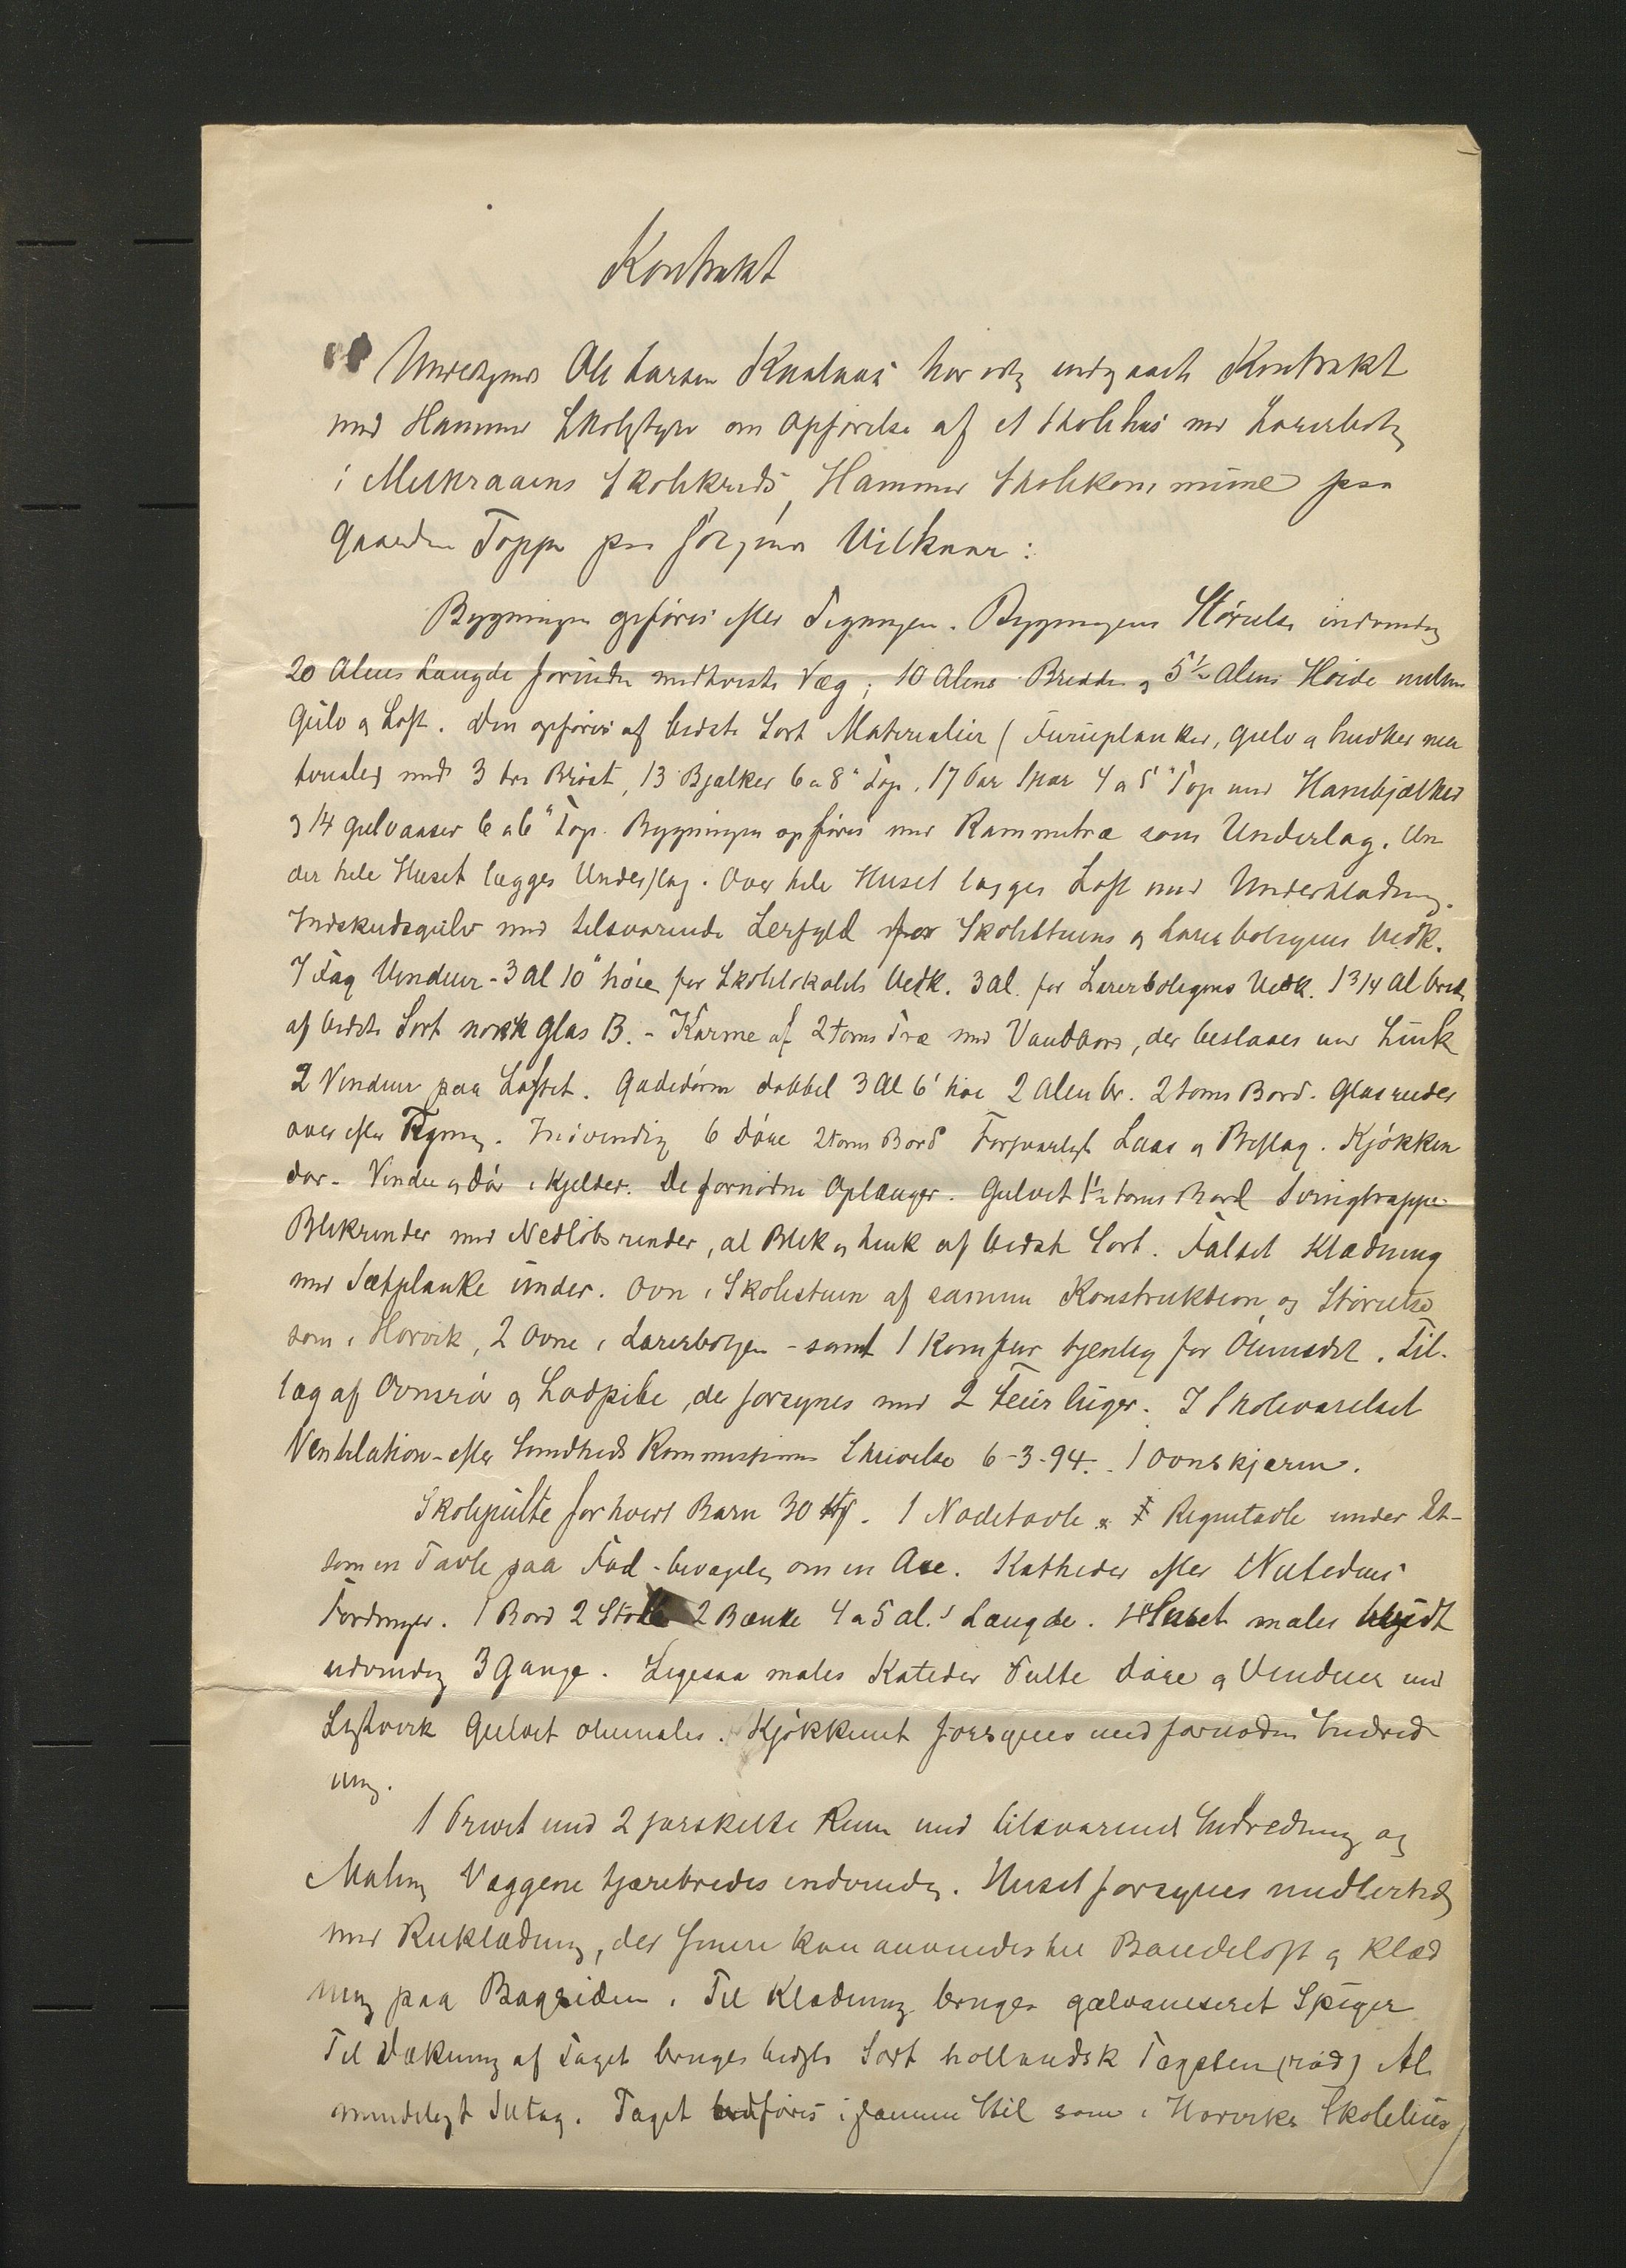 Kontrakt
Undertegnede Ole Larsen Kaalaas har idag indgaaet Kontrakt
med Hammer Skolestyre om Opførelse af et Skolehus med Lærerbolig
i Melkraaens Skolekreds, Hammer Skolekommune paa
Gaarden Toppe paa følgende Vilkaar:
Bygningen opføres efter Tegningen. Bygningens Størrelse indvendig
20 Alens Længde foruden midtveste Væg; 10 Alens Bredde og 5½ Alens Høide mellem
Gulv og Loft. Den opføres af bedste Sort Materialier (Furuplanker, Gulv og
med 3 Brøst, 13 Bjælker 6 a 8" Top. 17 Par Spær 4 a 5" Top med Hanebjælker
og 14 Gulvaaser 6 a 6" Top. Bygningen opføres med Rammetræ som Underlag. Un
der hele Huset lægges Underslag. Over hele Huset lægges Loft med Underklædning.
Indskudsgulv med tilsvarende Lerfyld for Skolestuens og Lærerboligens Vedk.
7 Fag Vinduer - 3 Al 10" høie for Skolelokalets Vedk. 3 Al. for Lærerboligens Vedk. 1 3/4 Al brede
af bedste Sort norsk Glas B. - Karme af 2 toms Træ med Vandbord, der beslaaes med Zink
2 Vinduer paa Loftet. Gadedøren dobbel 3 Al 6' høi 2 Alen br. 2 toms Bord. Glasruder
over efter Tegning. Indvendig 6 Døre 2 toms Bord Forsvarligt Laas og Beslag. Kjøkken
dør - Vindu og Dør i Kjelder. De fornødne Oplænger. Gulvet 1½ toms Bord Svingtrappe
Blikrender med Nedløbsrender, al Blik og Zink af bedste Sort. Falset Klædning
med Tætplanke under. Ovn i Skolestuen af samme Konstruktion og Størrelse
som i Horvik, 2 Ovne i Lærerboligen - samt 1 Komfur tjenlig for Øiemedet. Til-
læg af Ovnsrør og Lodpibe, der forsynes med 2 Feierluger. I Skoleværelset
Ventilation - efter Sundheds Kommissionens Skrivelse 6-3-94. - 1 Ovnskjærm.
Skolepulte for hvert Barn 30 Stk. 1 Nodetavle & Regnetavle under Et -
som en Tavle paa Fod - bevægelig om en Axe. Katheder efter Nutidens
Fordringer. 1 Bord 2 Stole 2 Bænke 4 a 5 al.s Længde. Huset males hvidt
udvendig 3 Gange. Ligesaa males Kateder Pulte Døre og Vinduer med
Listverk Gulvet oliemales. Kjøkkenet forsynes med fornøden Indred
ning.
1 Privet med 2 forskilte Rum med tilsvarende Indredning og
Maling Væggene tjærebredes indvendig. Huset forsynes midlertid
med Ruklædning, der senere kan anvendes til Bandeloft og Klæd
ning paa Bagsiden. Til Klædning bruges galvaniseret Spiger
Til Dækning af Taget bruges bedste Sort hollandsk Tagsten (rød) Al
mindeligt Sutag. Taget udføres i samme Stil som i Horviks Skolehus